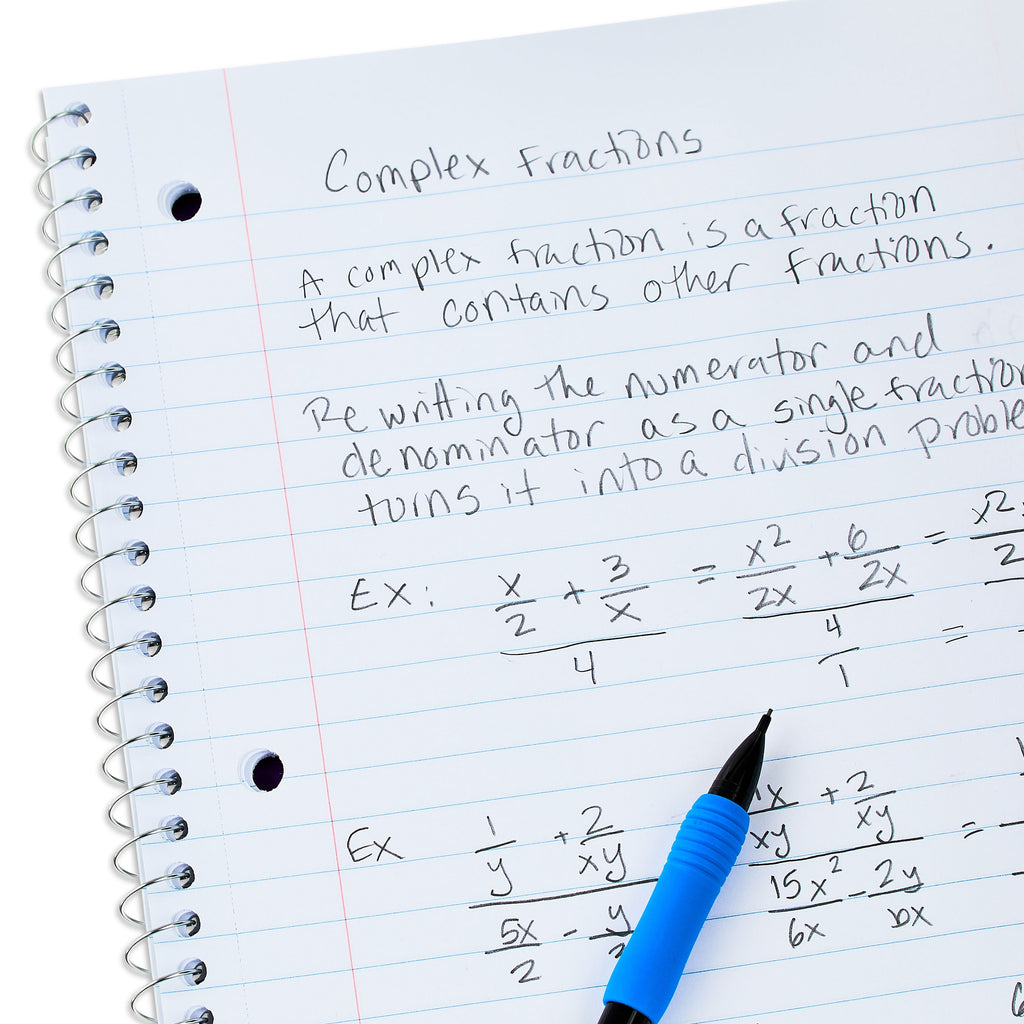 Complex Fractions
A complex fraction is a fraction
that contains other fractions.
Rewritting the numerator and
denominator as a single
turns it into a division
EX: x/2 + 3/x = x²/2x + 6/2x =
4 4/1 =
Ex 1/y + 2/xy 1x/xy + 2/xy =
5x/2 - y 15x²/6x - 2y